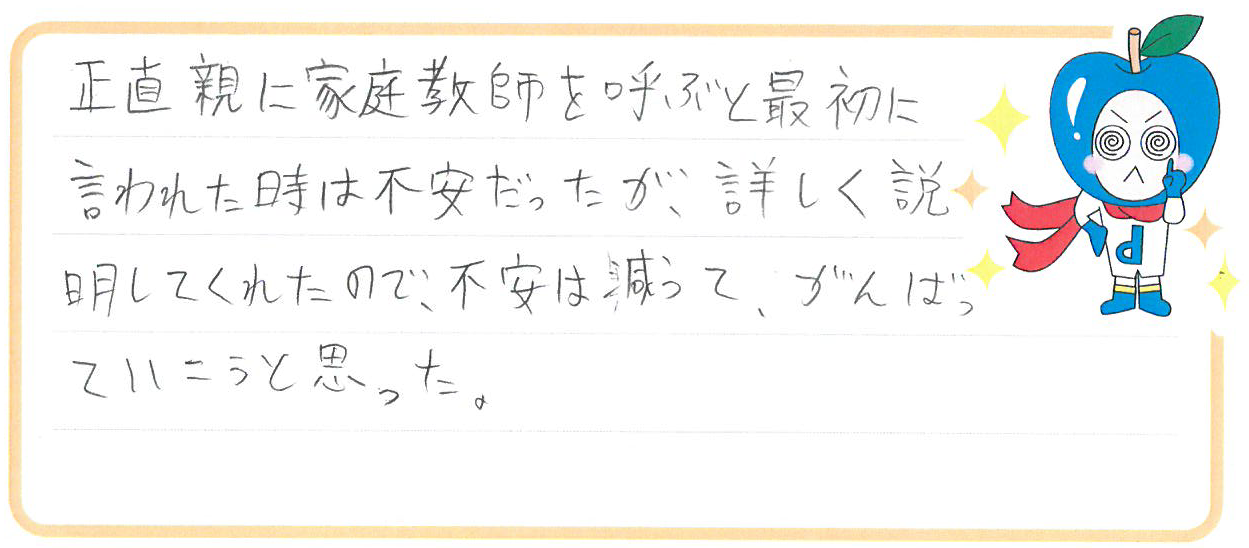 正直親に家庭教師を呼ぶと最初に
言われた時は不安だったが、詳しく説
明してくれたので、不安は減って、がんばっ
ていこうと思った。
d